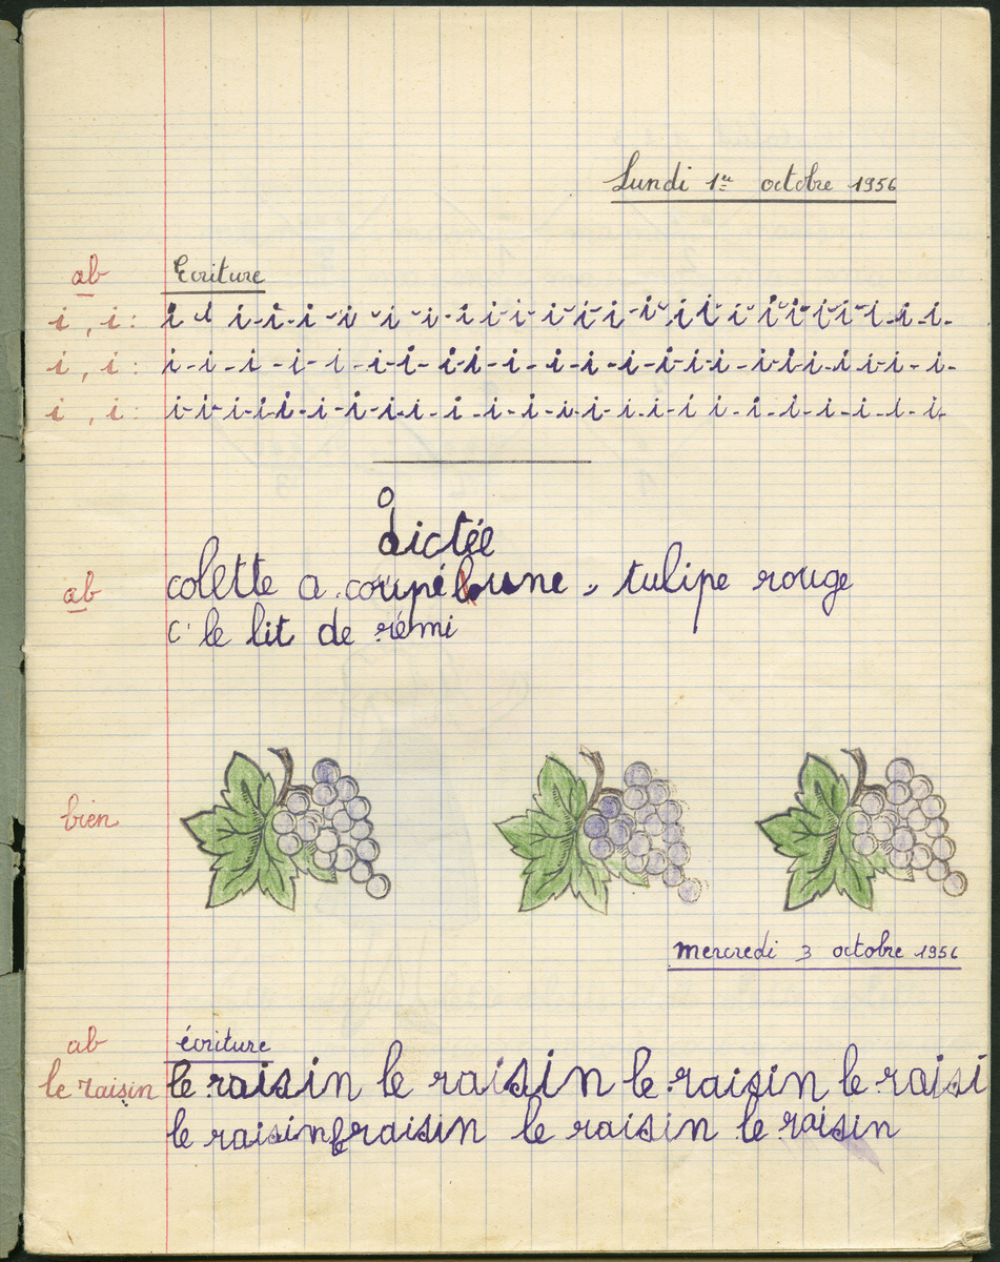 Lundi 1er octobre 1956
ab Ecriture
i, i: i i i-i-i i i i-i i i i i i-i i i i i i i i i i-i-i-
i, i: i-i-i-i-i-i-i-i-i-i-i-i-i-i-i-i-i-i-i-i-i-i-i-
i, i: i-i-i-i-i-i-i-i-i-i-i-i-i-i-i-i-i-i-i-i-i-i-i
O
dictée
ab colette a coupé une tulipe rouge
c' le lit de rémi
bien
mercredi 3 octobre 1956
ab écriture
le raisin le raisin le raisin le raisin le raisi
le raisin raisin le raisin le raisin